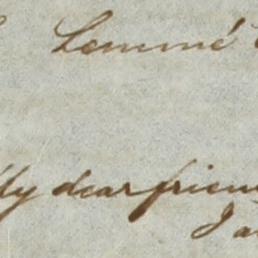 Lemmé
My dear frien
I a